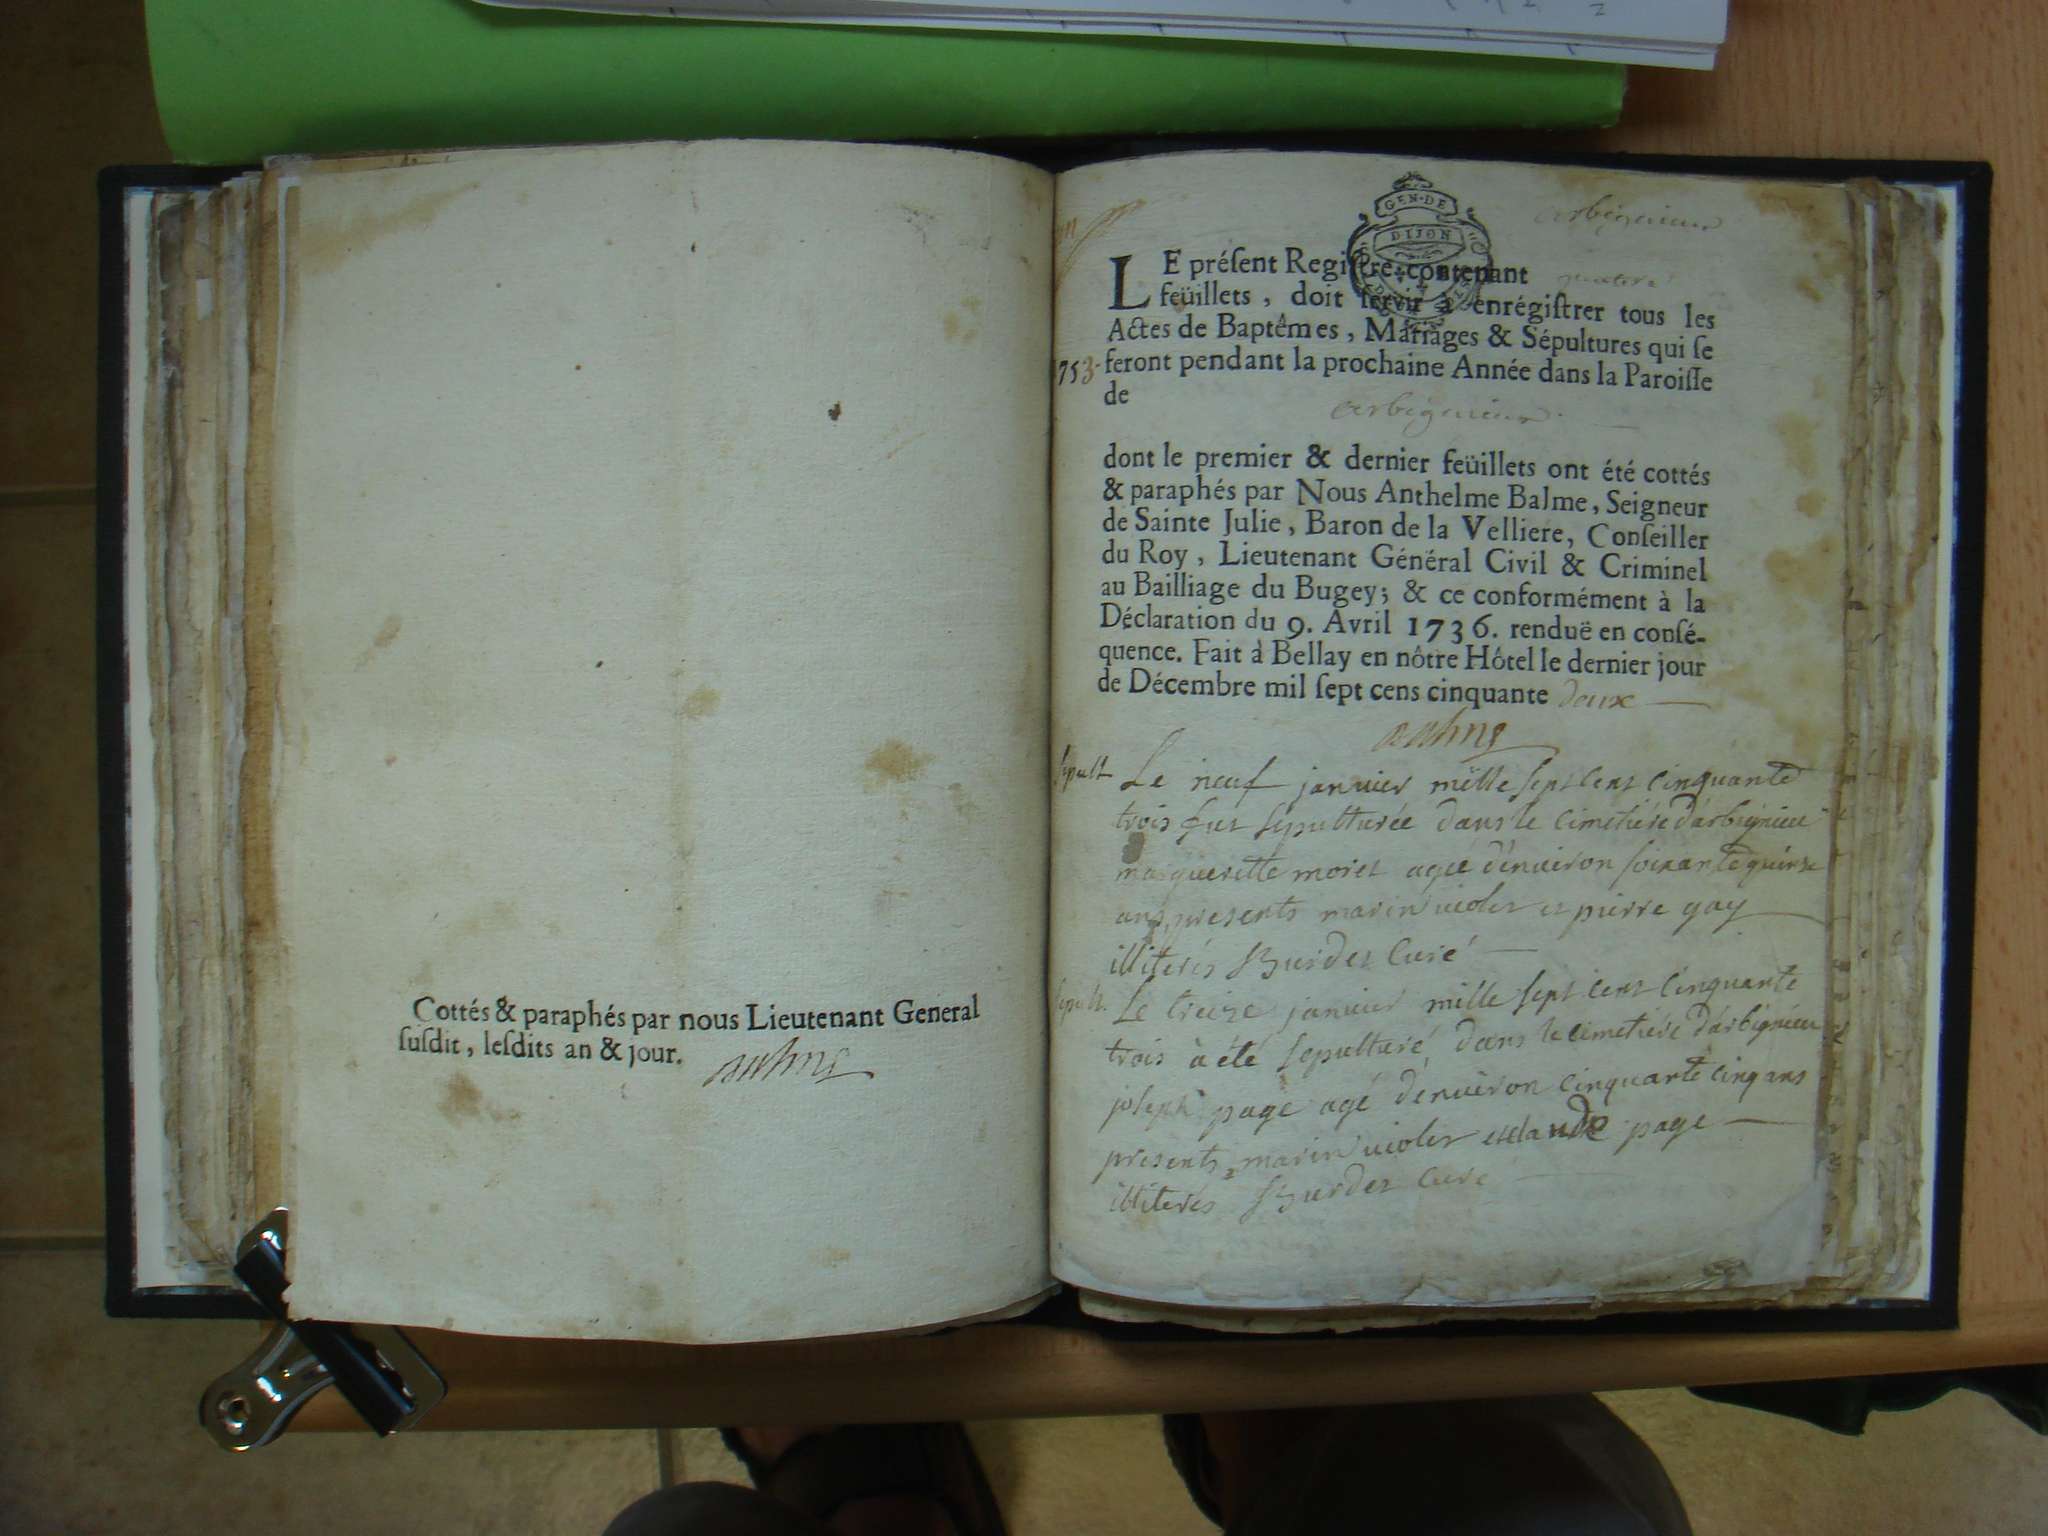 Cottés & paraphés par nous Lieutenant General
ſuſdit, leſdits an & jour.
GEN·DE
DIJON
arbignieu
LE préſent Regiſtre contenant quatorze
feüillets, doit ſervir à enrégiſtrer tous les
Actes de Baptêmes, Mariages & Sépultures qui ſe
1753. feront pendant la prochaine Année dans la Paroiſſe
de arbignieu
dont le premier & dernier feüillets ont été cottés
& paraphés par Nous Anthelme Balme, Seigneur
de Sainte Julie, Baron de la Velliere, Conſeiller
du Roy, Lieutenant Général Civil & Criminel
au Bailliage du Bugey; & ce conformément à la
Déclaration du 9. Avril 1736. renduë en conſé-
quence. Fait à Bellay en nôtre Hôtel le dernier jour
de Décembre mil ſept cens cinquante deux
sepult Le neuf janvier mille sept cent cinquante
trois fut sepulturée dans le cimetiére d'arbignieu
margueritte moret agée d'environ soixante quinze
ans, presents marin violet et pierre gay
illiterés Burdet Curé
sepult. Le treize janvier mille sept cent cinquante
trois à été sepulturé dans le cimetiére d'arbignieu
joseph page agé d'environ cinquante cinq ans
presents marin violet et claude page
illiterés Burdet Curé